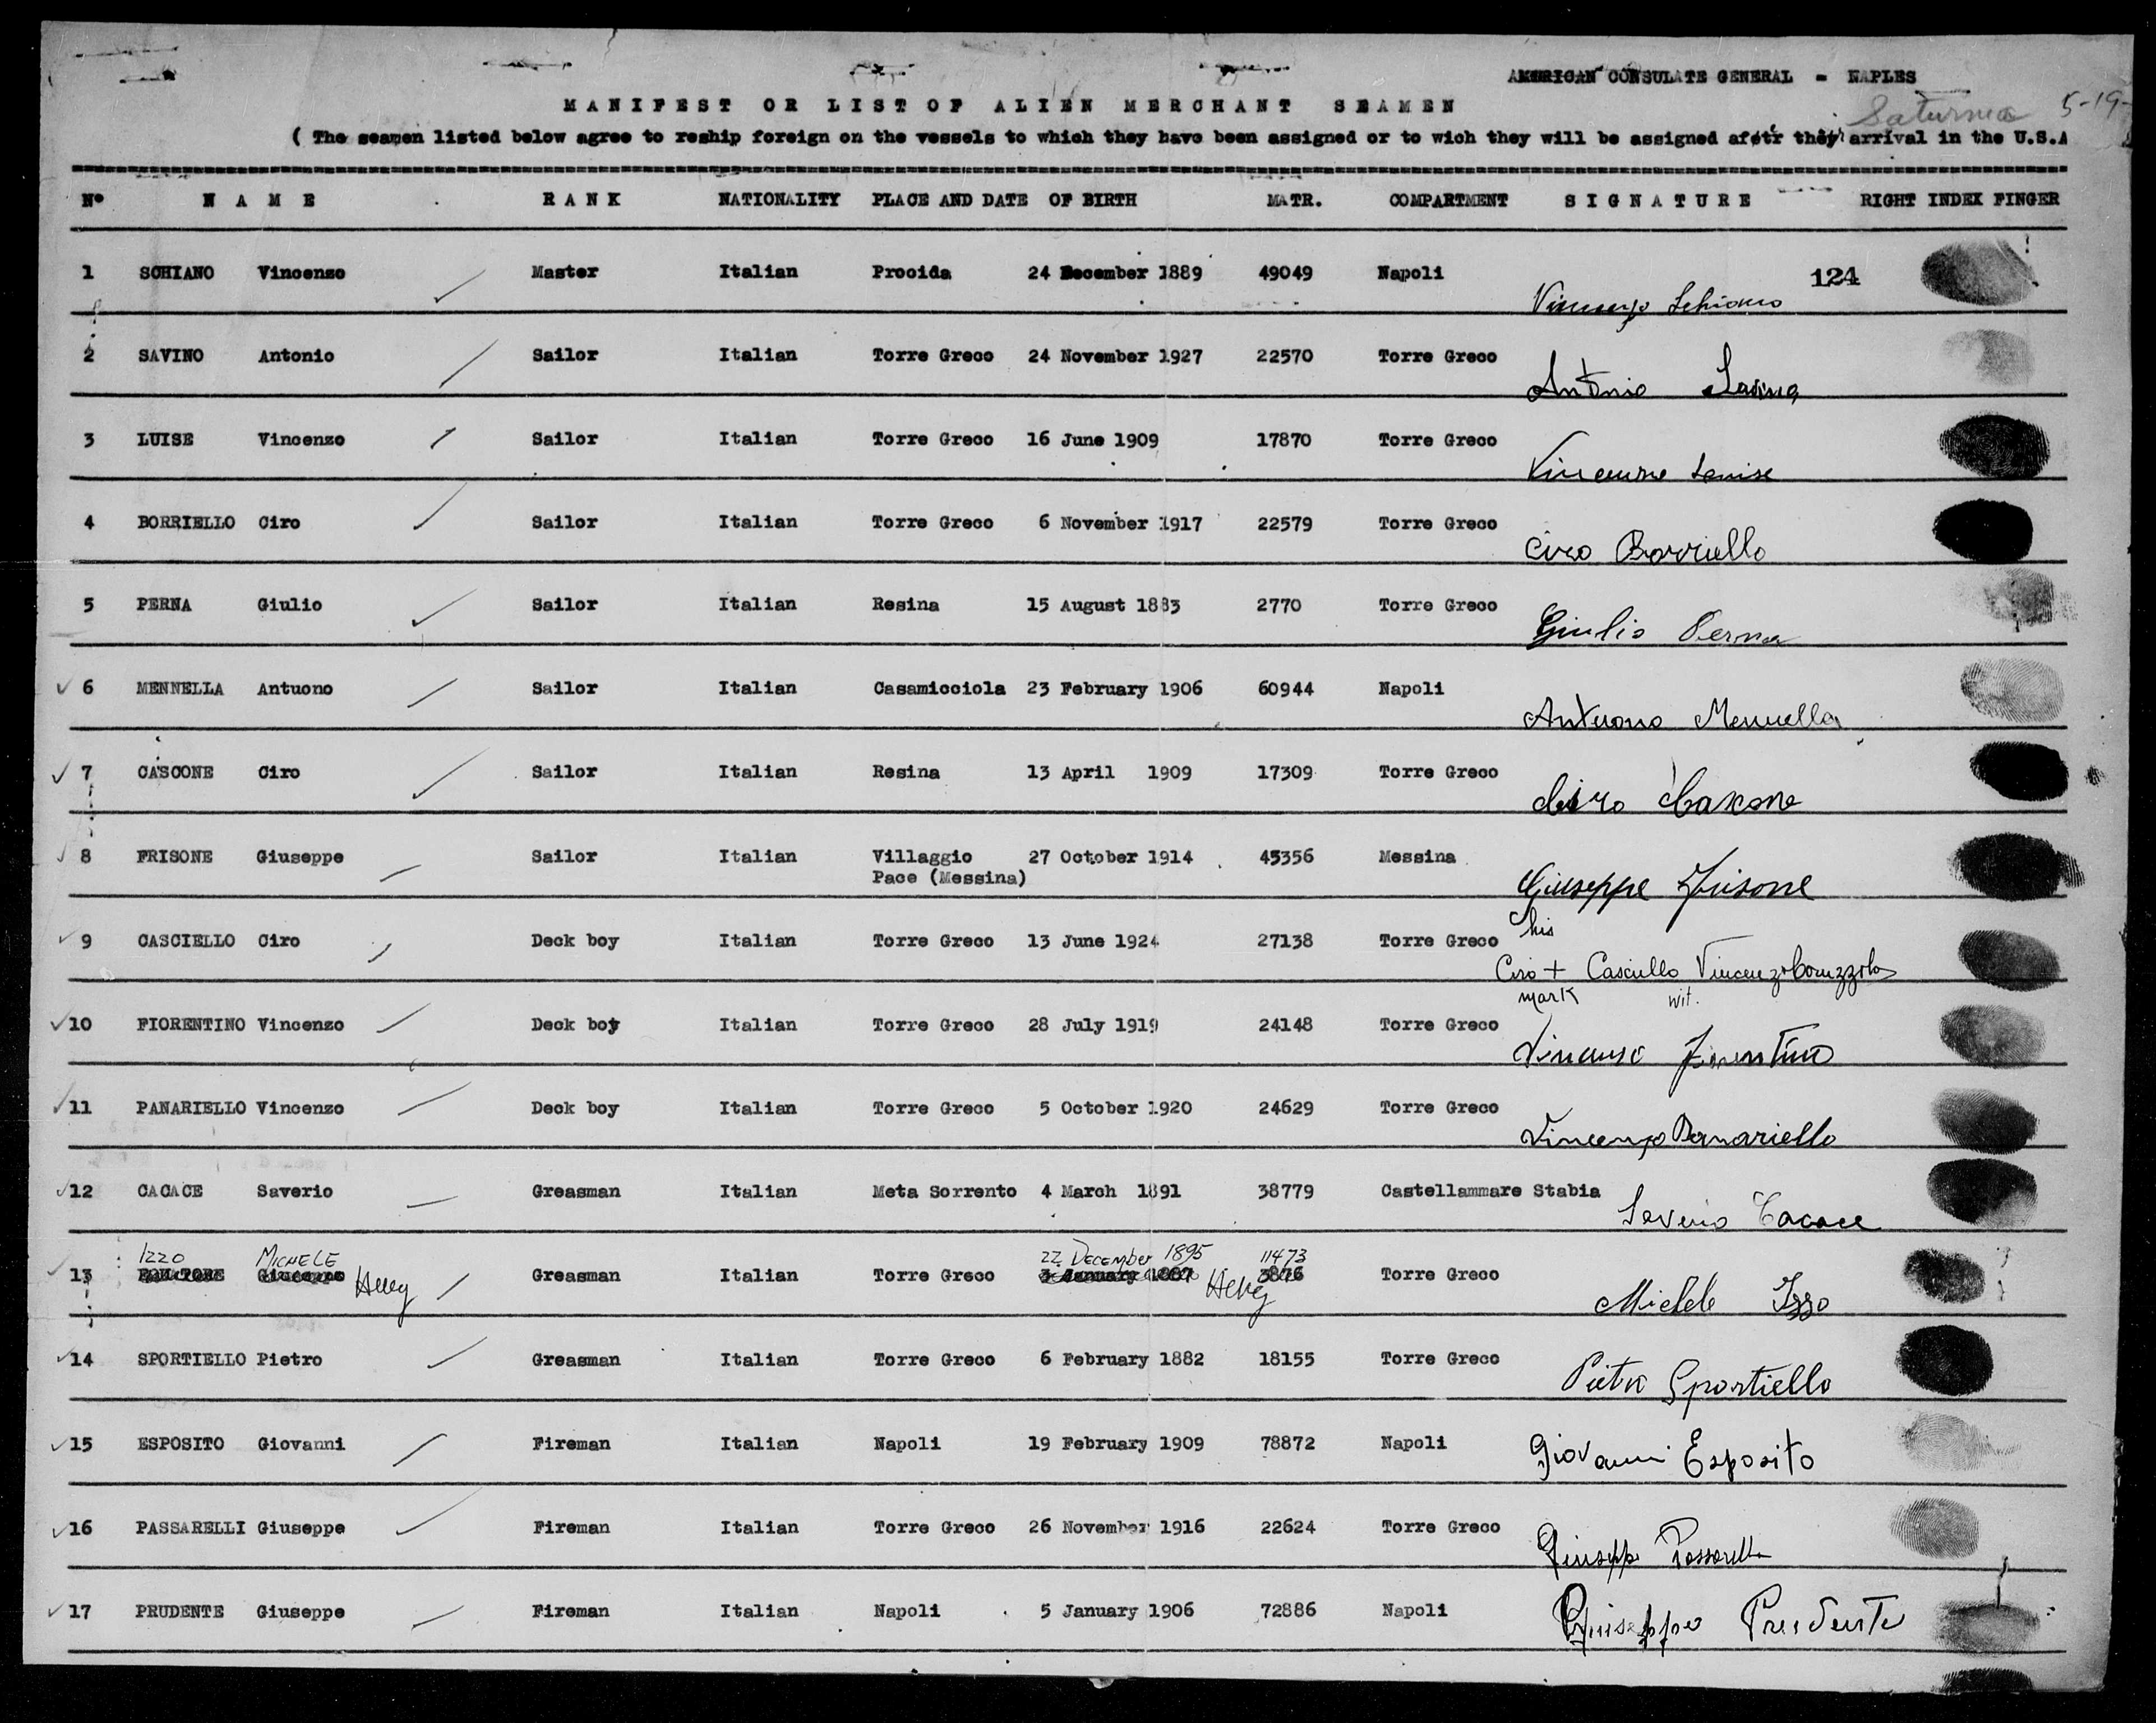 AMERICAN CONSULATE GENERAL - NAPLES
MANIFEST OR LIST OF ALIEN MERCHANT SEAMEN
Saturnia 5-19-
( The seamen listed below agree to reship foreign on the vessels to which they have been assigned or to wich they will be assigned aftér their arrival in the U.S.A
N° NAME RANK NATIONALITY PLACE AND DATE OF BIRTH MATR. COMPARTMENT SIGNATURE RIGHT INDEX FINGER
1 SCHIANO Vincenzo Master Italian Procida 24 December 1889 49049 Napoli 124
Vincenzo Schiano
2 SAVINO Antonio Sailor Italian Torre Greco 24 November 1927 22570 Torre Greco
Antonio Savino
3 LUISE Vincenzo Sailor Italian Torre Greco 16 June 1909 17870 Torre Greco
Vincenzo Louise
4 BORRIELLO Ciro Sailor Italian Torre Greco 6 November 1917 22579 Torre Greco
Ciro Borriello
5 PERNA Giulio Sailor Italian Resina 15 August 1883 2770 Torre Greco
Giulio Perna
6 MENNELLA Antuono Sailor Italian Casamicciola 23 February 1906 60944 Napoli
Antuono Mennella
7 CASCONE Ciro Sailor Italian Resina 13 April 1909 17309 Torre Greco
Ciro Cascone
8 FRISONE Giuseppe Sailor Italian Villaggio 27 October 1914 45356 Messina
Pace (Messina)
Giuseppe Frisone
his
9 CASCIELLO Ciro Deck boy Italian Torre Greco 13 June 1924 27138 Torre Greco
Ciro + Casciello Vincenzo
mark wit.
10 FIORENTINO Vincenzo Deck boy Italian Torre Greco 28 July 1919 24148 Torre Greco
Vincenzo Fiorentino
11 PANARIELLO Vincenzo Deck boy Italian Torre Greco 5 October 1920 24629 Torre Greco
Vincenzo Panariello
12 CACACE Saverio Greasman Italian Meta Sorrento 4 March 1891 38779 Castellammare Stabia
Saverio Cacace
IZZO MICHELE 22 DECEMBER 1895 11473
13 Greasman Italian Torre Greco 3 January 3876 Torre Greco
Michele Izzo
14 SPORTIELLO Pietro Greasman Italian Torre Greco 6 February 1882 18155 Torre Greco
Pietro Sportiello
15 ESPOSITO Giovanni Fireman Italian Napoli 19 February 1909 78872 Napoli
Giovanni Esposito
16 PASSARELLI Giuseppe Fireman Italian Torre Greco 26 November 1916 22624 Torre Greco
Giuseppe Passarelli
17 PRUDENTE Giuseppe Fireman Italian Napoli 5 January 1906 72886 Napoli
Giuseppe Prudente